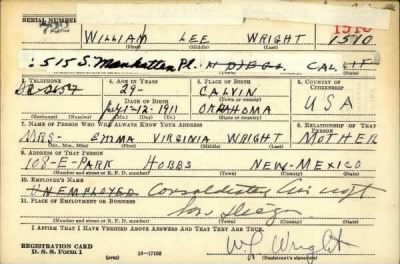 SERIAL NUMBER
1510
WILLIAM LEE WRIGHT 1510
(First) (Middle) (Last)
1515 S. Manhattan Pl. N DIEGO, CALIF
3. TELEPHONE 4. AGE IN YEARS 5. PLACE OF BIRTH 6. COUNTRY OF CITIZENSHIP
29- CALVIN
DATE OF BIRTH
July-12-1911 OKLAHOMA USA
(Exchange) (Number) (Mo.) (Day) (Yr.) (State or country)
7. NAME OF PERSON WHO WILL ALWAYS KNOW YOUR ADDRESS 8. RELATIONSHIP OF THAT PERSON
MRS- EMMA VIRGINIA WRIGHT MOTHER
(Mr., Mrs., Miss) (First) (Middle) (Last)
9. ADDRESS OF THAT PERSON
108-E-PARK HOBBS NEW-MEXICO
(Number and street or R. F. D. number) (Town) (County) (State)
10. EMPLOYER'S NAME
UNEMPLOYED Consolidated Aircraft
11. PLACE OF EMPLOYMENT OR BUSINESS
San Diego
(Number and street or R. F. D. number) (Town) (County) (State)
I AFFIRM THAT I HAVE VERIFIED ABOVE ANSWERS AND THAT THEY ARE TRUE.
REGISTRATION CARD
D. S. S. Form 1 16-17105 WL Wright
(Registrant's signature)